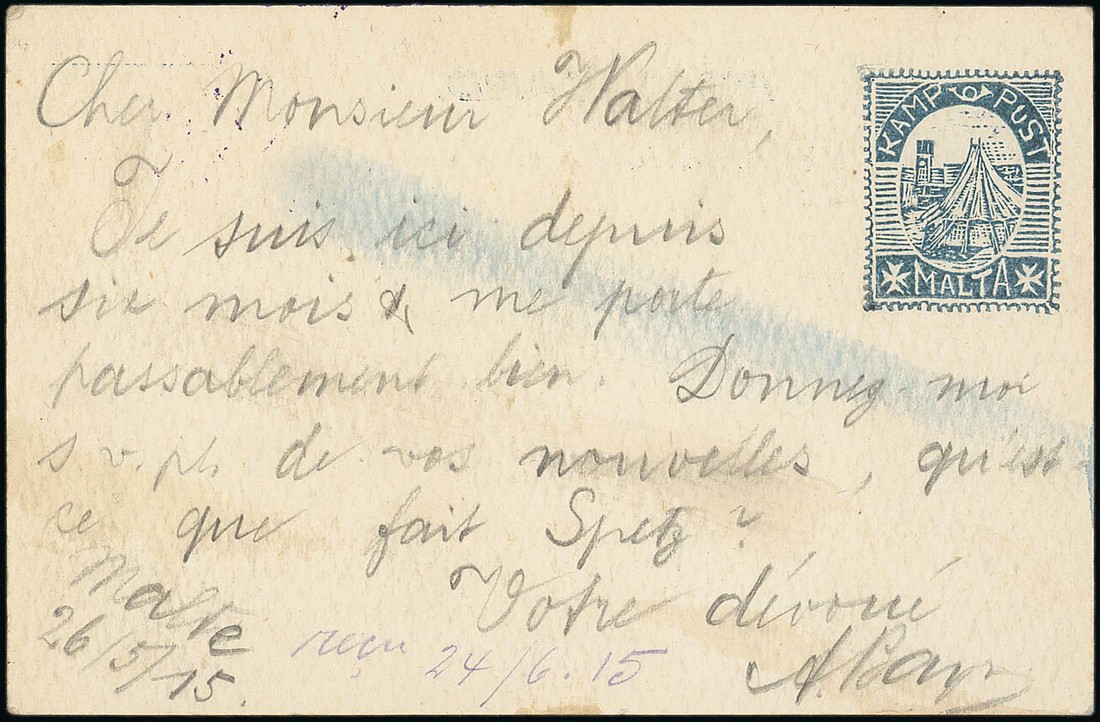 Cher Monsieur Walter,
KAMP POST
MALTA
Je suis ici depuis
six mois & me porte
passablement bien. Donnez-moi
s.v.pl. de vos nouvelles, qu'est-
ce que fait Spetz?
Votre dévoué
Malte
26/5/15.
reçu 24/6.15